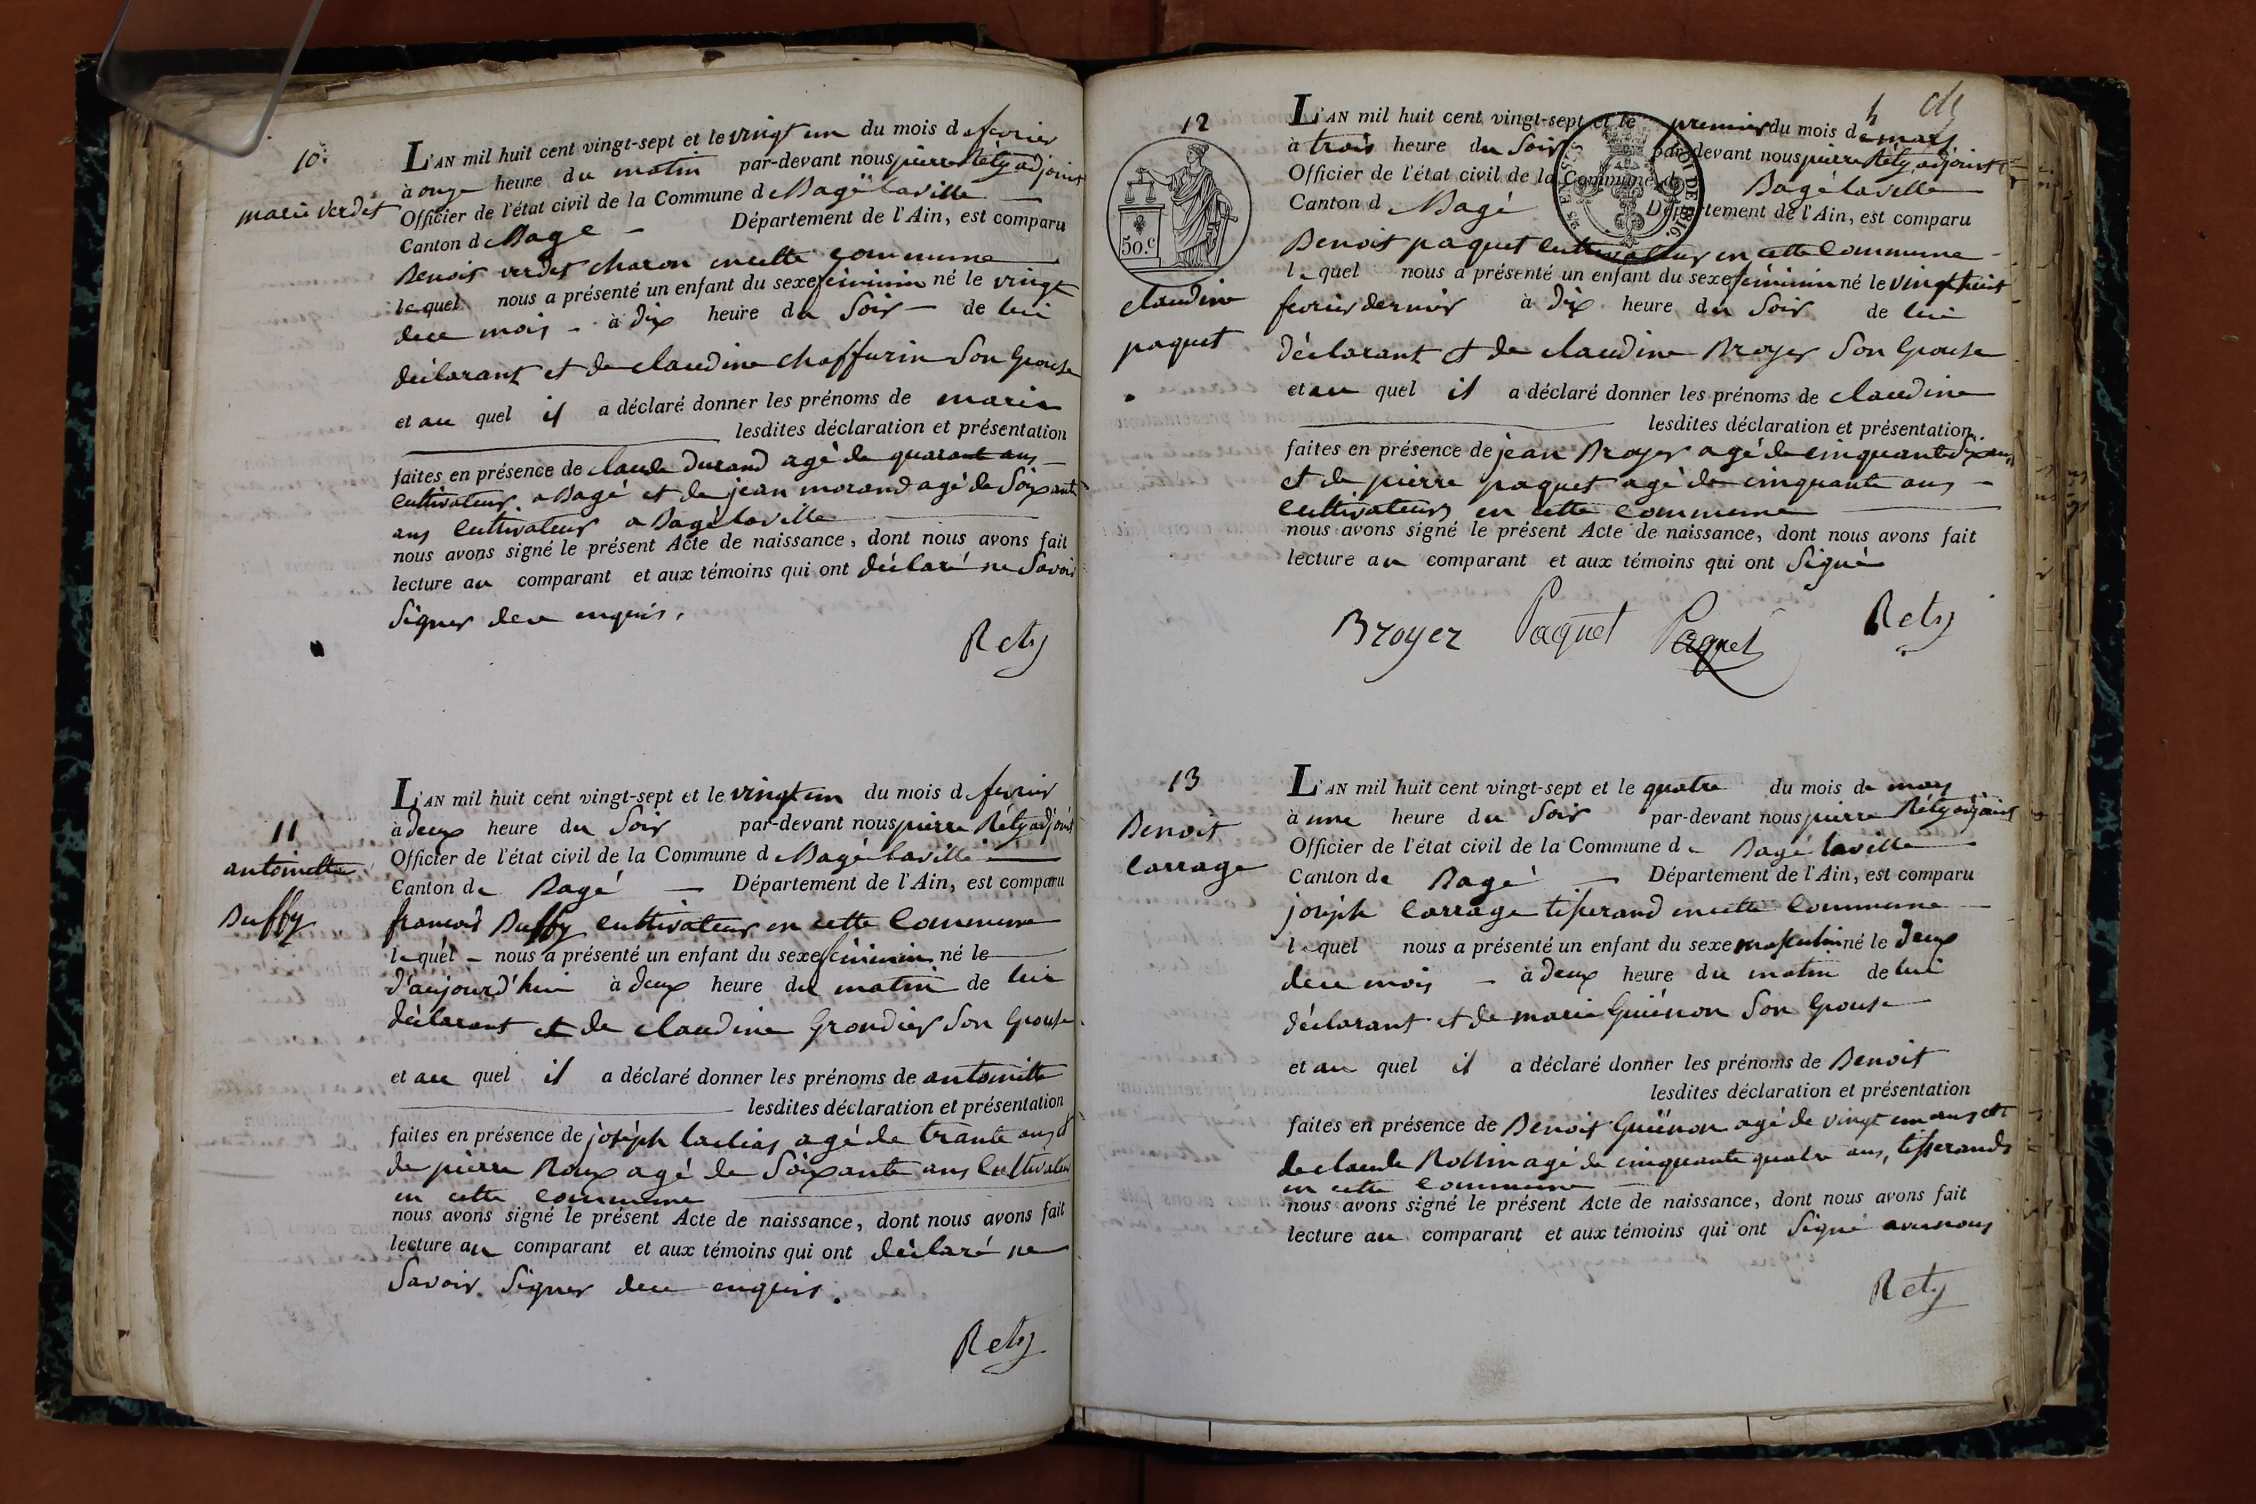 10.
marie verdet
L'AN mil huit cent vingt-sept et le vingt un du mois de fevrier
à onze heure du matin par-devant nous pierre Réty adjoint
Officier de l'état civil de la Commune d Bagé laville
Canton d Bage Département de l'Ain, est comparu
Benoit verdet charon en cette commune
lequel nous a présenté un enfant du sexe féminin né le vingt
de ce mois à dix heure du soir de lui
déclarant et de claudine chaffurin son épouse
et au quel il a déclaré donner les prénoms de marie
lesdites déclaration et présentation
faites en présence de claude durand agé de quarante ans
cultivateur a Bagé et de jean morand agé de soixante
ans cultivateur a Bagé laville
nous avons signé le présent Acte de naissance, dont nous avons fait
lecture au comparant et aux témoins qui ont déclaré ne savoir
signer de ce enquis.
Rety
11
antoinette
Buffy
L'AN mil huit cent vingt-sept et le vingt un du mois de fevrier
à deux heure du soir par-devant nous pierre Réty adjoint
Officier de l'état civil de la Commune d Bagé laville
Canton de Bagé Département de l'Ain, est comparu
francois Buffy cultivateur en cette commune
lequel nous a présenté un enfant du sexe féminin né le
d'aujourd'hui à deux heure du matin de lui
déclarant et de claudine Grondier son épouse
et au quel il a déclaré donner les prénoms de antoinette
lesdites déclaration et présentation
faites en présence de joseph agé de trante ans et
de pierre Roux agé de soixante ans cultivateur
en cette commune
nous avons signé le présent Acte de naissance, dont nous avons fait
lecture au comparant et aux témoins qui ont déclaré ne
savoir signer de ce enquis.
Rety
4
12
50.c
claudine
paquet
L'AN mil huit cent vingt-sept et le premier du mois de mars
à trois heure du soir par-devant nous pierre Réty adjoint
Officier de l'état civil de la Commune d Bagé laville
Canton d Bagé Département de l'Ain, est comparu
Benoit paquet cultivateur en cette commune
lequel nous a présenté un enfant du sexe féminin né le vingt huit
fevrier dernier à dix heure du soir de lui
déclarant et de claudine Broyer son épouse
et au quel il a déclaré donner les prénoms de claudine
lesdites déclaration et présentation
faites en présence de jean Broyer agé de cinquante dix ans
et de pierre paquet agé de cinquante ans
cultivateurs en cette commune
nous avons signé le présent Acte de naissance, dont nous avons fait
lecture au comparant et aux témoins qui ont signé
Broyer Paquet Paquet Rety
13
Benoit
Carrage
L'AN mil huit cent vingt-sept et le quatre du mois de mars
à une heure du soir par-devant nous pierre Réty adjoint
Officier de l'état civil de la Commune de Bagé laville
Canton de Bagé Département de l'Ain, est comparu
joseph Carrage tisserand en cette commune
lequel nous a présenté un enfant du sexe masculin né le deux
de ce mois à deux heure du matin de lui
déclarant et de marie Guénon son épouse
et au quel il a déclaré donner les prénoms de Benoit
lesdites déclaration et présentation
faites en présence de Benoit Guénon agé de vingt un ans et
de claude Rollin agé de cinquante quatre ans, tisserands
en cette commune
nous avons signé le présent Acte de naissance, dont nous avons fait
lecture au comparant et aux témoins qui ont signé avec nous
Rety